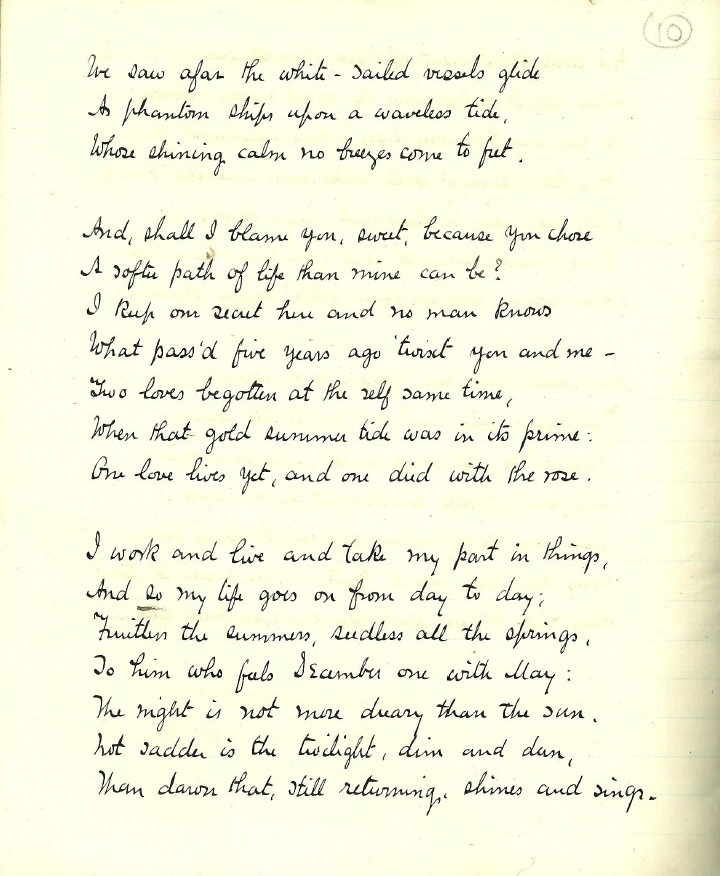 10
We saw afar the white-sailed vessels glide
As phantom ships upon a waveless tide,
Whose shining calm no breezes come to fret.
And, shall I blame you, sweet, because you chose
A softer path of life than mine can be?
I keep our secret here and no man knows
What pass'd five years ago 'twixt you and me –
Two loves begotten at the self same time,
When that gold summer tide was in its prime:
One love lives yet, and one died with the rose.
I work and live and take my part in things,
And so my life goes on from day to day;
Fruitless the summers, seedless all the springs,
To him who feels December one with May:
The night is not more dreary than the sun,
Not sadder is the twilight, dim and dun,
Than dawn that, still returning, shines and sings.